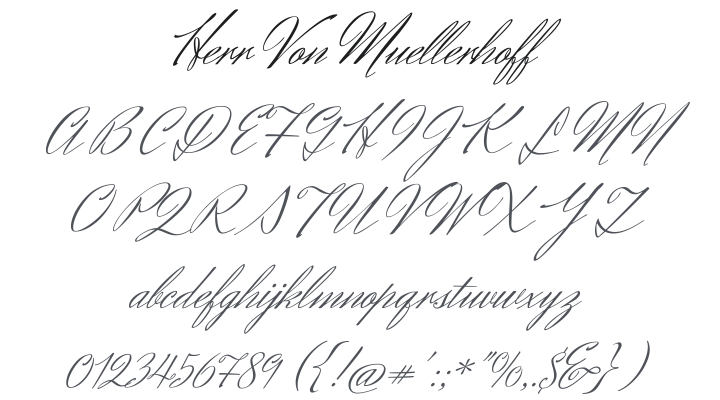 Herr Von Muellerhoff
ABCDEFGHIJKLMN
OPQRSTUVWXYZ
abcdefghijklmnopqrstuvwxyz
0123456789 ({!@#':;*"%,.$&})